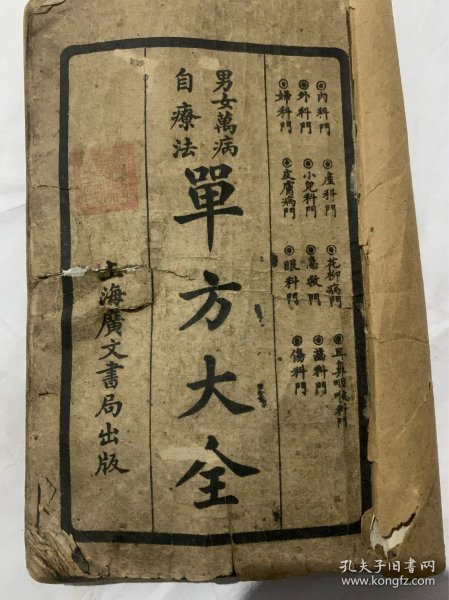 ◉內科門
◉外科門
◉婦科門
◉產科門
◉小兒科門
◉皮膚病門
◉花柳病門
◉急救門
◉眼科門
◉耳鼻咽喉科門
◉齒科門
◉傷科門
男女萬病
自療法
單方大全
上海廣文書局出版
孔夫子旧书网
www.kongfz.com